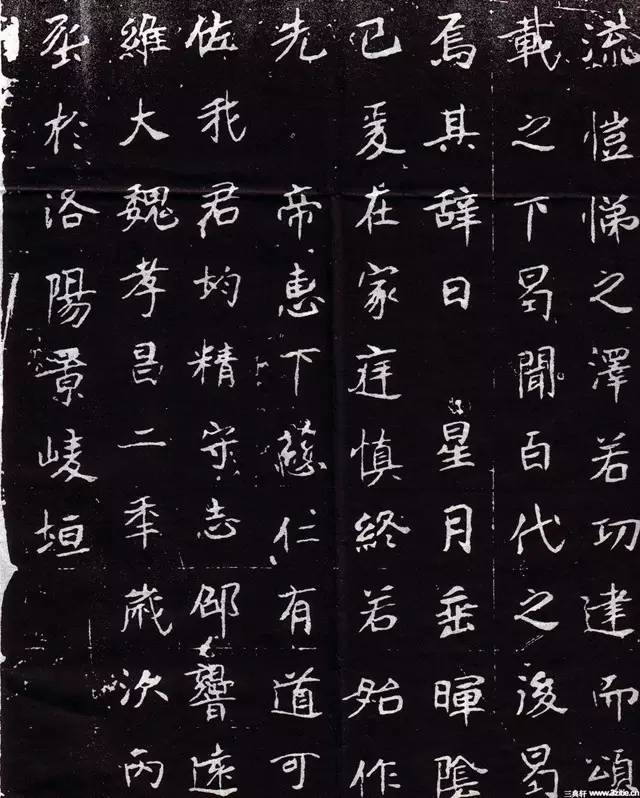 流愷悌之澤若功建而頌
載之下曷聞百代之後曷
焉其辞曰 星月垂暉陰
已爰在家庭慎終若始作
先 帝惠下慈仁有道可
佐我君均精守志邵響遠
維大魏孝昌二年歲次丙
於洛陽景崚垣
三典轩 www.3zitie.cn